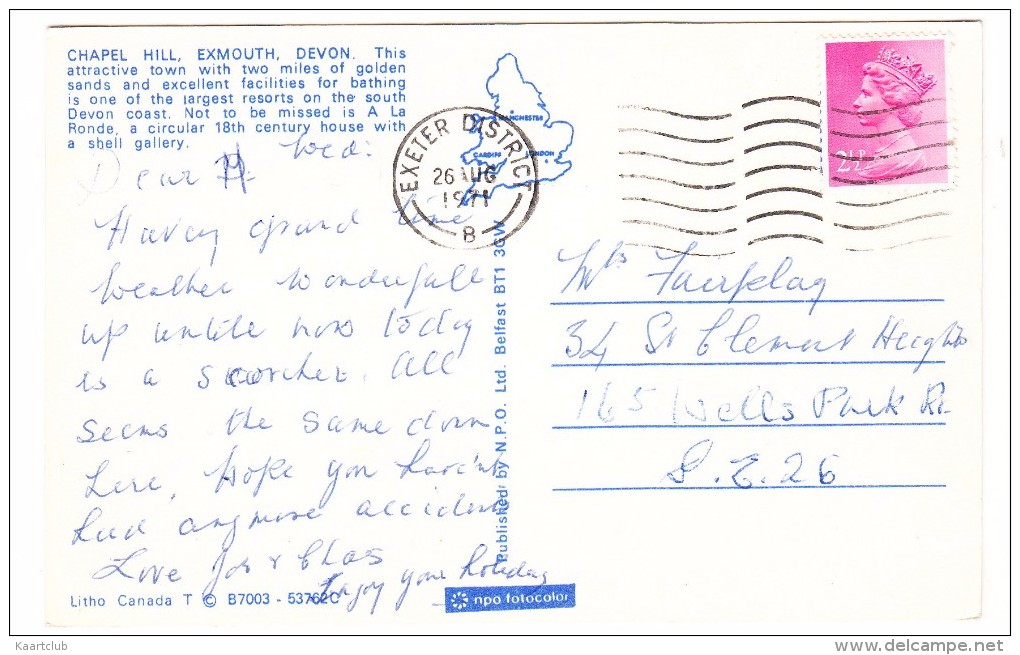 CHAPEL HILL, EXMOUTH, DEVON. This
attractive town with two miles of golden
sands and excellent facilities for bathing
is one of the largest resorts on the south
Devon coast. Not to be missed is A La
Ronde, a circular 18th century house with
a shell gallery.
Wed:
Dear
Having grand time
weather wonderfull
up untile now today
is a scorcher. All
seems the same down
here, Hope you haven't
had anymore accidents
Love Joy & Chas
Enjoy your holiday
Litho Canada T © B7003 - 53762C
MANCHESTER
CARDIFF
LONDON
EXETER DISTRICT
26 AUG
1971
B
Published by N.P.O. Ltd. Belfast BT1 3GW
npo fotocolor
2½P
Mrs Fairplay
34 St Clement Heights
165 Wells Park Rd
S.E.26
Kaartclub
www.delcampe.net